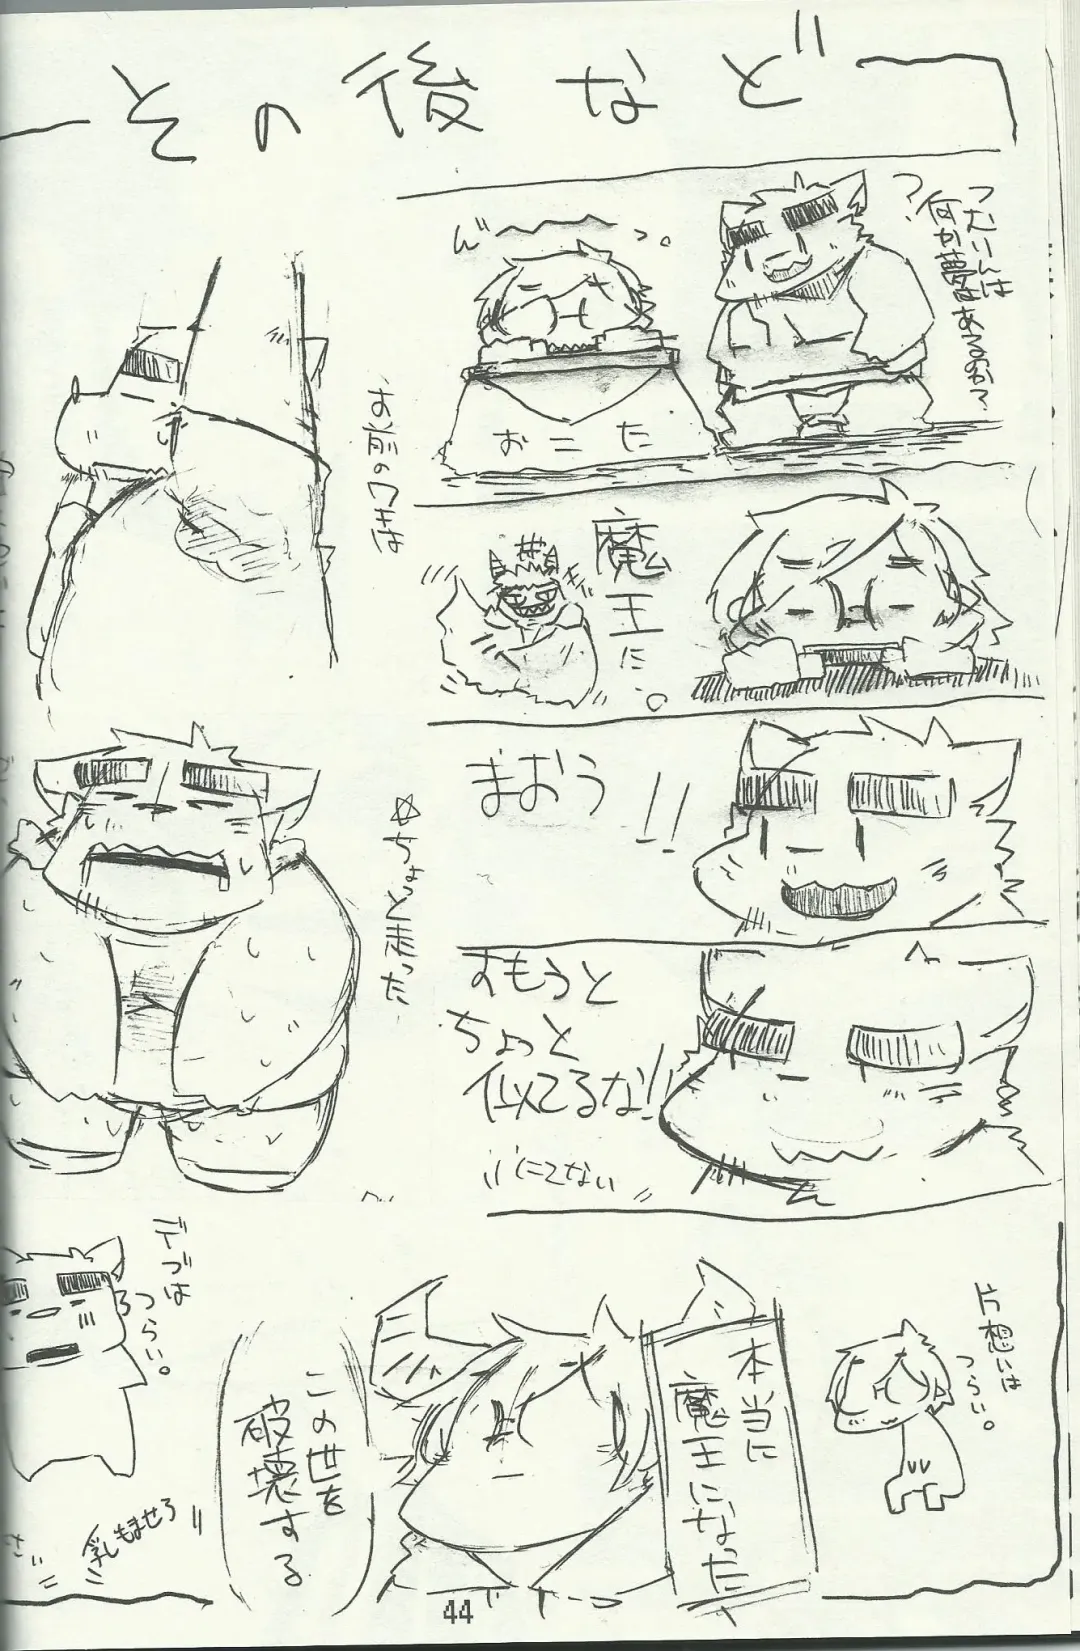 その後など
つむりんは
何か夢はあるのか?
?
おこた
魔王に。
まおう!!
すもうと
ちょっと
似てるな!!
にてない
お前のワキは
☆ちょっと走った
片想いは
つらい。
本当に
魔王になった
この世を
破壊する
デブは
つらい。
乳もませろ
44